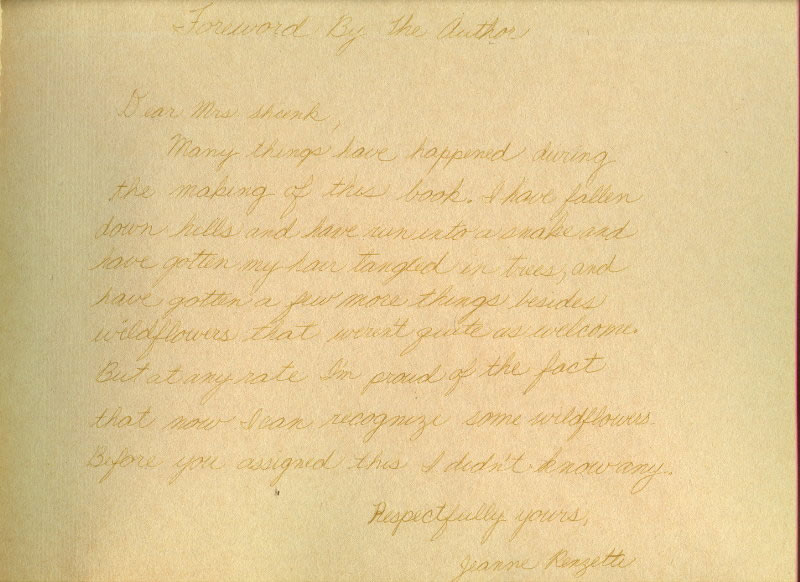 Foreword By the Author
Dear Mrs Shunk,
Many things have happened during
the making of this book. I have fallen
down hills and have run into a snake and
have gotten my hair tangled in trees, and
have gotten a few more things besides
wildflowers that weren't quite as welcome.
But at any rate I'm proud of the fact
that now I can recognize some wildflowers.
Before you assigned this I didn't know any.
Respectfully yours,
Jeanne Renzette